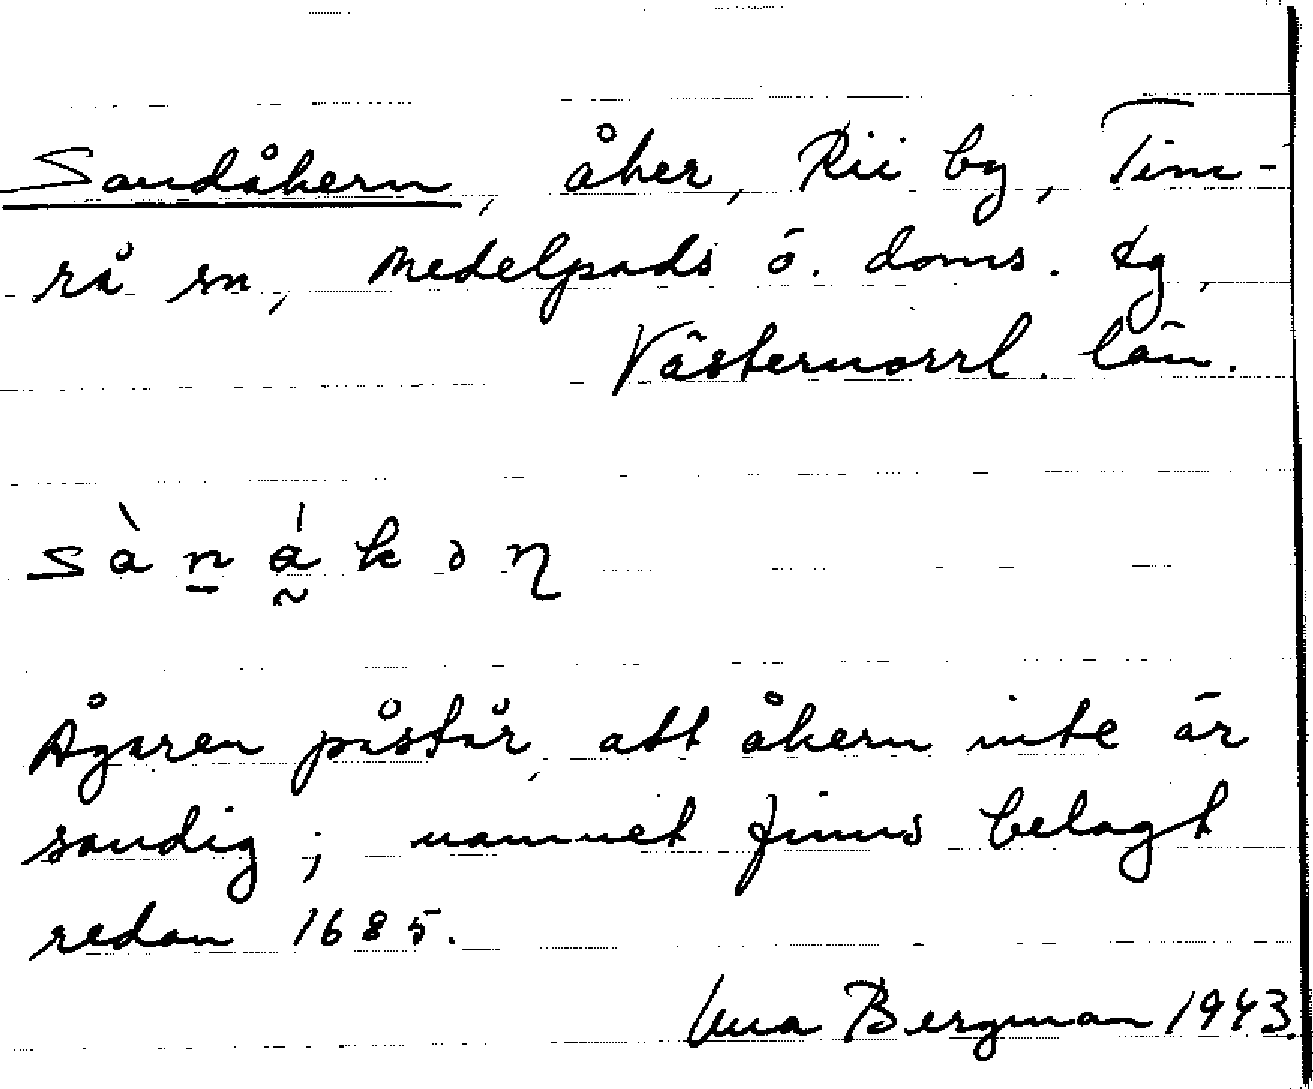 Sandåkern, åker, Rii by, Tim-
rå sn, Medelpads ö. doms. tg,
Västernorrl. län.
sàn̠á̰kəɳ
Ägaren påstår, att åkern inte är
sandig; namnet finns belagt
redan 1685.
Bergman 1943.